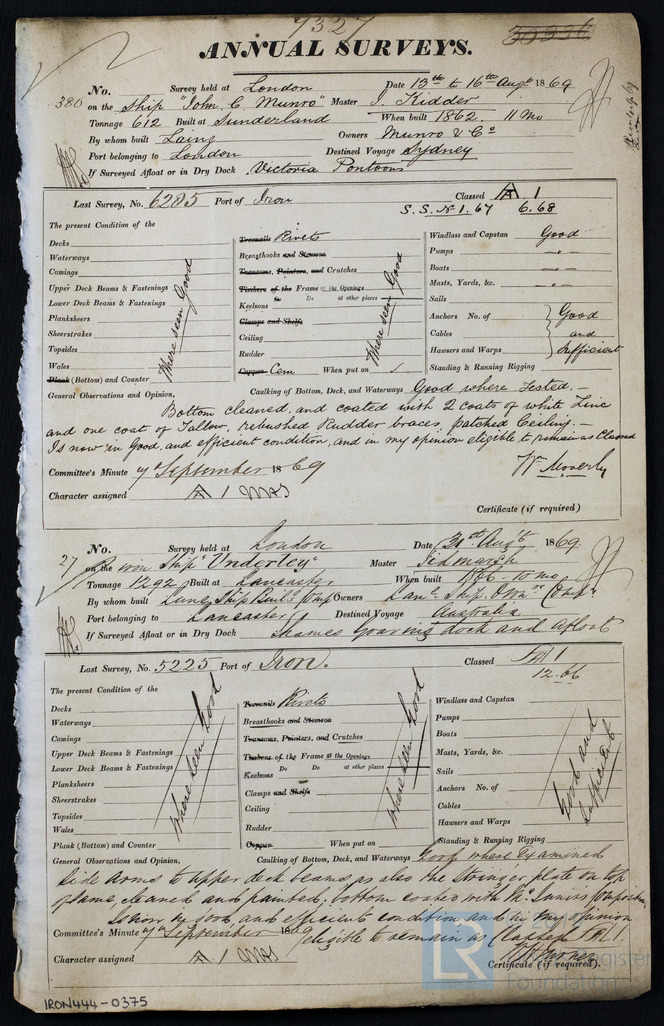 7327
30336
ANNUAL SURVEYS.
380
No. Survey held at London Date 13th to 16th Augt 1869
on the Ship "John C. Munro" Master J. Kidder
Tonnage 612 Built at Sunderland When built 1862. 11 Mo
By whom built Laing Owners Munro & Co
Port belonging to London Destined Voyage Sydney
If Surveyed Afloat or in Dry Dock Victoria Pontoons
Last Survey, No. 6285 Port of Iron Classed A 1
S. S. No 1. 67 6.68
The present Condition of the
Decks
Waterways
Comings
Upper Deck Beams & Fastenings
Lower Deck Beams & Fastenings
Planksheers
Sheerstrakes
Topsides
Wales
Plank (Bottom) and Counter
Where seen Good
Treenails Rivets
Breasthooks and Stemson
Transoms, Pointers, and Crutches
Timbers of the Frame at the Openings
Do Do at other places
Keelsons
Clamps and Shelfs
Ceiling
Rudder
Copper Cem When put on
Where seen Good
Windlass and Capstan Good
Pumps "
Boats "
Masts, Yards, &c. "
Sails
Anchors No. of Good
Cables and
Hawsers and Warps Sufficient
Standing & Running Rigging
General Observations and Opinion, Caulking of Bottom, Deck, and Waterways Good where Tested.
Bottom cleaned, and coated with 2 coats of white Zinc
and one coat of Tallow, rebushed Rudder braces, patched Ceiling.
Is now in Good, and efficient condition, and in my opinion eligible to remain as Classed
Wm Moverly
Committee's Minute 7 September 1869
Character assigned A 1
Certificate (if required)
27
No. Survey held at London Date 31st Augt 1869.
on the Iron Ship "Underley" Master Tidmarsh
Tonnage 1292 Built at Lancaster When built 1866 - 10 mo
By whom built Lune Ship Buildg Comp Owners Lanc Ship Own Comp
Port belonging to Lancaster Destined Voyage Australia
If Surveyed Afloat or in Dry Dock Thames Graving dock and afloat
Last Survey, No. 5225 Port of Iron. Classed A 1
12.66
The present Condition of the
Decks
Waterways
Comings
Upper Deck Beams & Fastenings
Lower Deck Beams & Fastenings
Planksheers
Sheerstrakes
Topsides
Wales
Plank (Bottom) and Counter
Where seen Good
Treenails Rivets
Breasthooks and Stemson
Transoms, Pointers, and Crutches
Timbers of the Frame at the Openings
Do Do at other places
Keelsons
Clamps and Shelfs
Ceiling
Rudder
Copper When put on
Where seen Good
Windlass and Capstan
Pumps
Boats
Masts, Yards, &c.
Sails
Anchors No. of
Cables
Hawsers and Warps
Standing & Running Rigging
Good and sufficient
General Observations and Opinion, Caulking of Bottom, Deck, and Waterways Good where Examined
Side Arms to upper deck beams as also the Stringer plate on top
of same, cleaned and painted, bottom coated with Composition
Is now in good, and efficient condition and in my opinion
Committee's Minute 7th September 1869 eligible to remain as Classed A 1.
Character assigned A 1
Certificate (if required).
LR
Foundation
IRON444-0375